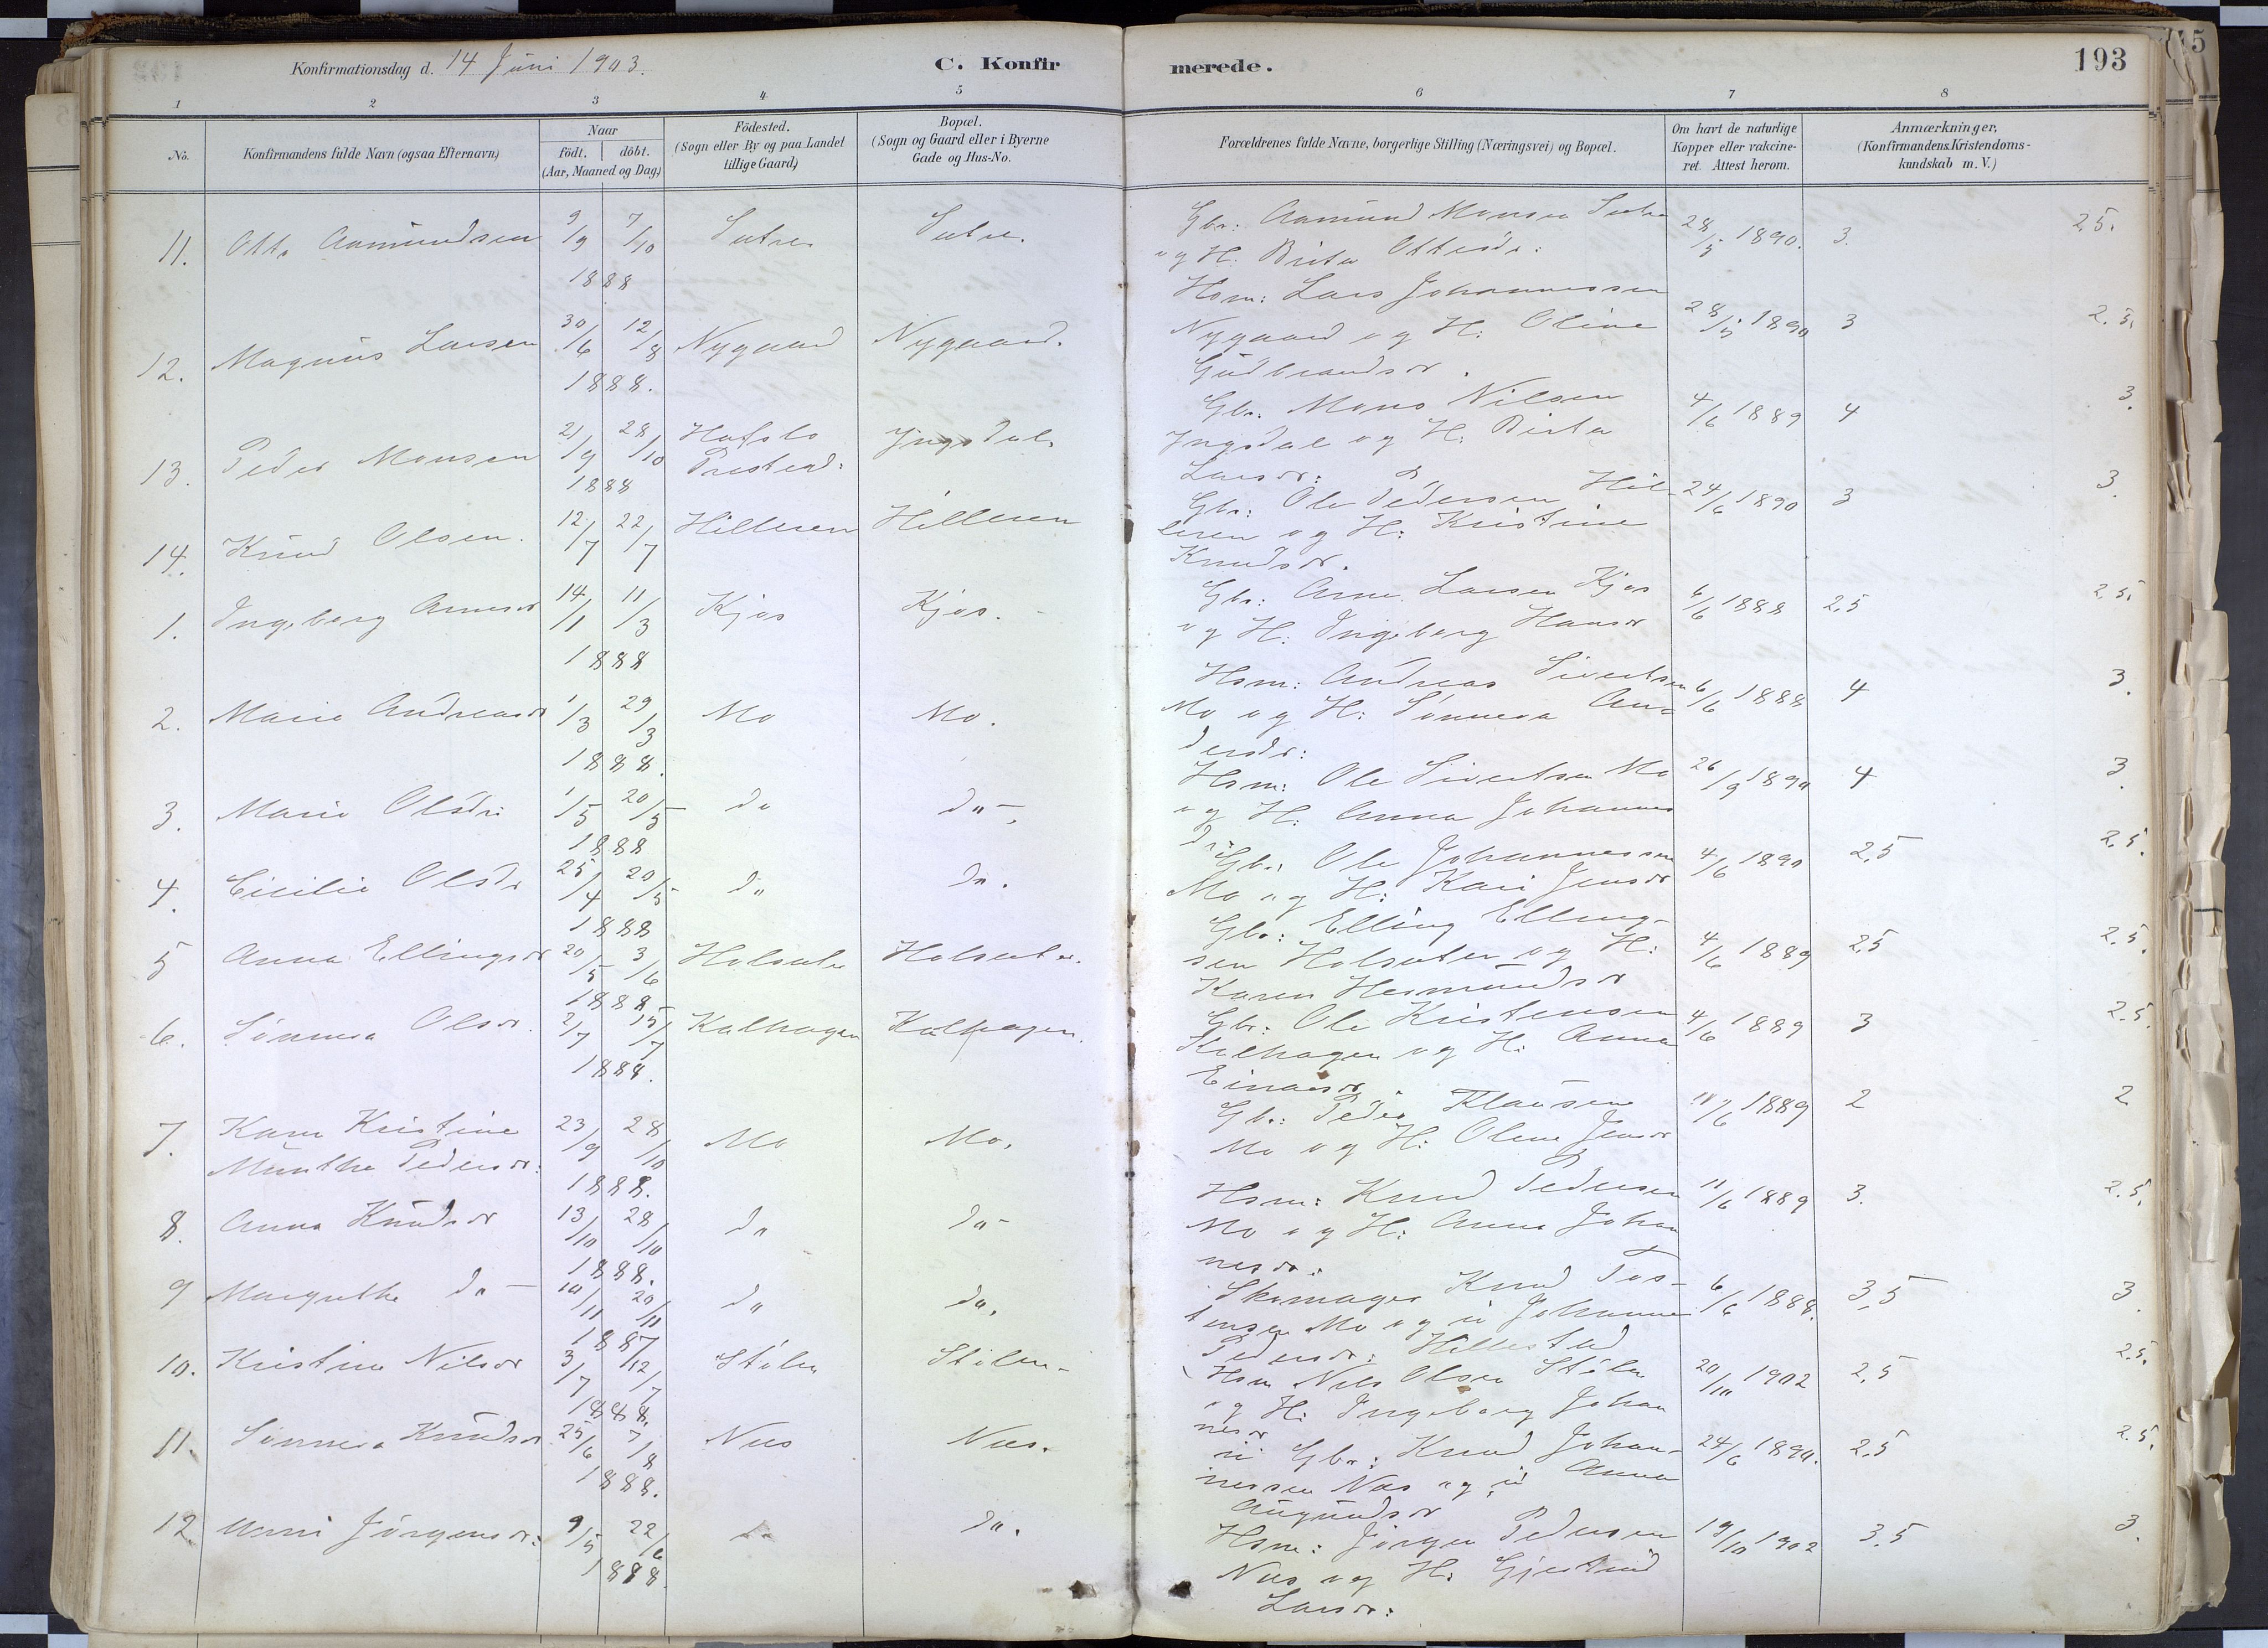 Konfirmationsdag d. 14 Juni 1903.
C. Konfirmerede.
193
1 2 3 4 5 6 7 8
No.
Konfirmandens fulde Navn (ogsaa Efternavn)
Naar
födt. döbt.
(Aar, Maaned og Dag.)
Födested.
(Sogn eller By og paa Landet
tillige Gaard)
Bopæl.
(Sogn og Gaard eller i Byerne
Gade og Hus-No.
Forældrenes fulde Navne, borgerlige Stilling (Næringsvei) og Bopæl.
Om havt de naturlige
Kopper eller vakcine-
ret. Attest herom.
Anmærkninger.
(Konfirmandens Kristendoms-
kundskab m. V.)
11. Otto Aamundsen 9/9 7/10 1888 Sutre Sutre.
Gbr: Aamund Monsen Sutre
og H: Brita Ottesdr:
28/5 1890. 3. 2.5.
12. Magnus Larsen 30/6 12/8 1888. Nygaard Nygaard.
Hsm: Lars Johannessen
Nygaard og H: Oline
Gudbrandsdr.
28/5 1890 3 2.5.
13. Peder Monsen 21/9 28/10 1888 Hafslo Presteg: Yngsdal.
Gbr. Mons Nilsen
Yngsdal og H: Brita
Larsdr:
4/6 1889 4 3.
14. Knud Olsen. 12/7 22/7 Hilleren Hilleren
Gbr: Ole Pedersen Hil-
leren og H: Kristine
Knudsdr.
24/6 1890 3 3.
1. Ingeborg Arnesdr 14/1 11/3 1888 Kjos Kjos.
Gbr: Arne Larsen Kjos
og H: Ingeborg Hansdr
6/6 1888 2,5 2.5.
2. Marie Andreasdr 1/3 29/3 1888. Mo Mo.
Hsm: Andreas Sivertsen
Mo og H: Sønneva An-
dersdr:
6/6 1888 4 3.
3. Marie Olsdr: 1/5 20/5 1888 do do-.
Hsm: Ole Sivertsen Mo
og H. Anna Johannes
dr:
26/9 1890 4 3.
4. Cicilie Olsdr 25/4 20/5 1888 do do.
Gbr: Ole Johannessen
Mo og H: Kari Jensdr
4/6 1890 2,5 2.5.
5 Anna Ellingsdr 20/5 3/6 1888 Holsæter Holsæter.
Gbr: Elling Elling-
sen Holsæter og H:
Karen Hermundsdr
4/6 1889 2,5 2.5.
6. Sønneva Olsdr. 2/7 15/7 1888. Kalhagen Kalhagen.
Gbr: Ole Kristensen
Kalhagen og H: Anna
Einarsdr.
4/6 1889 3 2.5.
7. Karen Kristine
Munthe Pedersdr: 23/9 28/10 1888. Mo Mo.
Gbr: Peder Klausen
Mo og H: Oline Jensdr
11/6 1889 2 2
8. Anna Knudsdr 13/10 28/10 1888. do do-
Hsm: Knud Pedersen
Mo og H: Anna Johan
nesdr:
11/6 1889 3. 2.5.
9 Margrethe do- 10/11 20/11 1887 do do.
Skomager Knud Tos-
tensen Mo og u Johanne
Pedersdr: Hillestad
6/6 1888. 3,5 3.
10. Kristine Nilsdr 3/7 12/7 1888. Stølen Stølen-
Hsm Nils Olsen Stølen
og H: Ingeborg Johan
nesdr
20/10 1902 2,5 2.5.
11. Sønneva Knudsdr 25/6 7/8 1888. Næs Næs.
u Gbr: Knud Johan-
nessen Næs og u Anna
Augundsdr
24/6 1890. 2.5 2.5.
12. Marri Jørgensdr: 9/5 22/6 1888. do do.
Hsm: Jørgen Pedersen
Næs og H: Gjertrud
Larsdr:
19/10 1902 3.5 3.